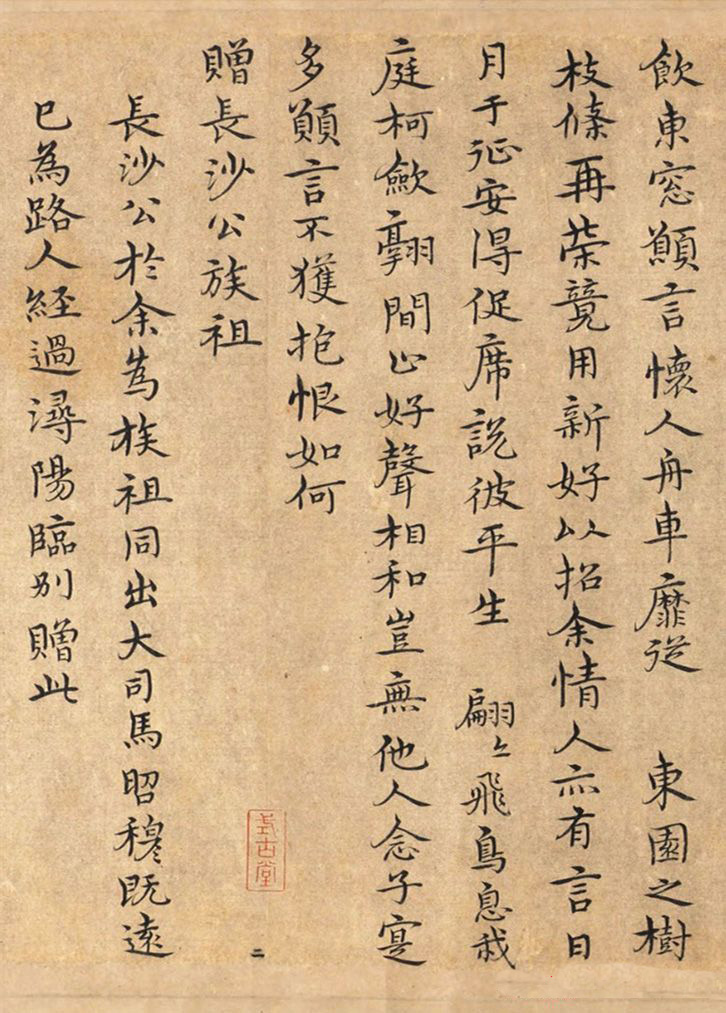 飲東窓願言懐人舟車靡從　東園之樹
枝條再荣競用新好以招余情人亦有言日
月于征安得促席說彼平生　翩〻飛鳥息我
庭柯歛翮間止好聲相和豈無他人念子寔
多願言不獲抱恨如何
贈長沙公族祖
長沙公於余為族祖同出大司馬昭穆既遠
已為路人經過潯陽臨别贈此
式古堂
二